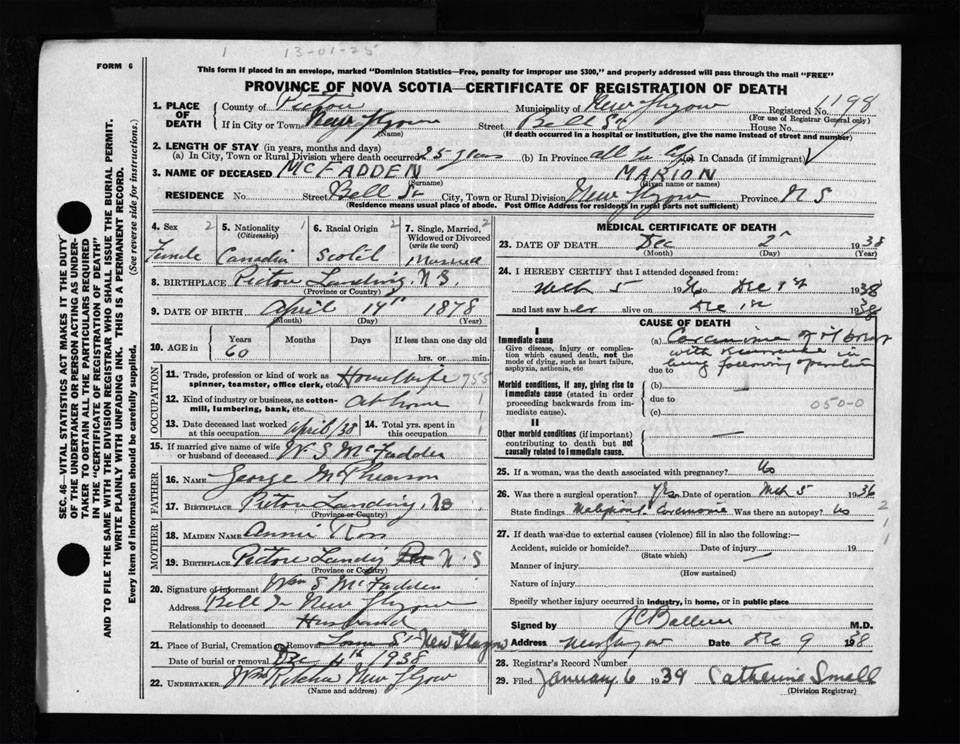 1 13-01-25
FORM 6
This form if placed in an envelope, marked "Dominion Statistics—Free, penalty for improper use $300," and properly addressed will pass through the mail "FREE"
PROVINCE OF NOVA SCOTIA—CERTIFICATE OF REGISTRATION OF DEATH
1. PLACE OF DEATH
County of Pictou Municipality of New Glasgow Registered No. 1198
(For use of Registrar General only)
If in City or Town New Glasgow Street Bell St House No.
(Name) (If death occurred in a hospital or institution, give the name instead of street and number)
2. LENGTH OF STAY (in years, months and days)
(a) In City, Town or Rural Division where death occurred 25 years (b) In Province all her life (c) In Canada (if immigrant)
3. NAME OF DECEASED McFADDEN MARION
(Surname) (Given name or names)
RESIDENCE No. Street Bell St City, Town or Rural Division New Glasgow Province N S
(Residence means usual place of abode. Post Office Address for residents in rural parts not sufficient)
4. Sex 2 5. Nationality 1 6. Racial Origin 2 7. Single, Married, Widowed or Divorced 2
(Citizenship) (write the word)
Female Canadian Scotch Married
8. BIRTHPLACE Pictou Landing, N.S.
(Province or Country)
9. DATE OF BIRTH April 14th 1878
(Month) (Day) (Year)
10. AGE in Years Months Days If less than one day old
60 hrs. or min.
OCCUPATION
11. Trade, profession or kind of work as spinner, teamster, office clerk, etc. Housewife 755
12. Kind of industry or business, as cotton-mill, lumbering, bank, etc. At home
13. Date deceased last worked at this occupation April/38 14. Total yrs. spent in this occupation
15. If married give name of wife or husband of deceased W. S McFadden
FATHER
16. NAME George McPhearson
17. BIRTHPLACE Pictou Landing, NS
(Province or Country)
MOTHER
18. MAIDEN NAME Annie Ross
19. BIRTHPLACE Pictou Landing N.S
(Province or Country)
20. Signature of informant Wm S McFadden
Address Bell St New Glasgow
Relationship to deceased Husband
21. Place of Burial, Cremation or Removal New Glasgow
Date of burial or removal Dec 4th 1938
22. UNDERTAKER New Glasgow
(Name and address)
MEDICAL CERTIFICATE OF DEATH
23. DATE OF DEATH Dec 2nd 1938
(Month) (Day) (Year)
24. I HEREBY CERTIFY that I attended deceased from:
Mch 5 1936 to Dec 1st 1938
and last saw her alive on Dec 1st 1938
CAUSE OF DEATH
I
Immediate cause
Give disease, injury or complication which caused death, not the mode of dying, such as heart failure, asphyxia, asthenia, etc
(a) Carcinoma of rt breast
with recurrence in
due to lung following operation
Morbid conditions, if any, giving rise to immediate cause (stated in order proceeding backwards from immediate cause).
(b)
due to
(c)
050-0
II
Other morbid conditions (if important) contributing to death but not causally related to immediate cause.
25. If a woman, was the death associated with pregnancy? No
26. Was there a surgical operation? Yes Date of operation Mch 5 1936
State findings Malignant Carcinoma Was there an autopsy? No
27. If death was due to external causes (violence) fill in also the following:—
Accident, suicide or homicide? Date of injury 19
(State which)
Manner of injury
(How sustained)
Nature of injury
Specify whether injury occurred in industry, in home, or in public place
Signed by M.D.
Address New Glasgow Date Dec 9 1938
28. Registrar's Record Number
29. Filed January 6 1939 Catherine Small
(Division Registrar)
SEC. 46—VITAL STATISTICS ACT MAKES IT THE DUTY
OF THE UNDERTAKER OR PERSON ACTING AS UNDERTAKER TO OBTAIN ALL THE PARTICULARS REQUIRED
IN THE "CERTIFICATE OF REGISTRATION OF DEATH"
AND TO FILE THE SAME WITH THE DIVISION REGISTRAR WHO SHALL ISSUE THE BURIAL PERMIT.
WRITE PLAINLY WITH UNFADING INK. THIS IS A PERMANENT RECORD.
Every item of information should be carefully supplied. (See reverse side for instructions.)